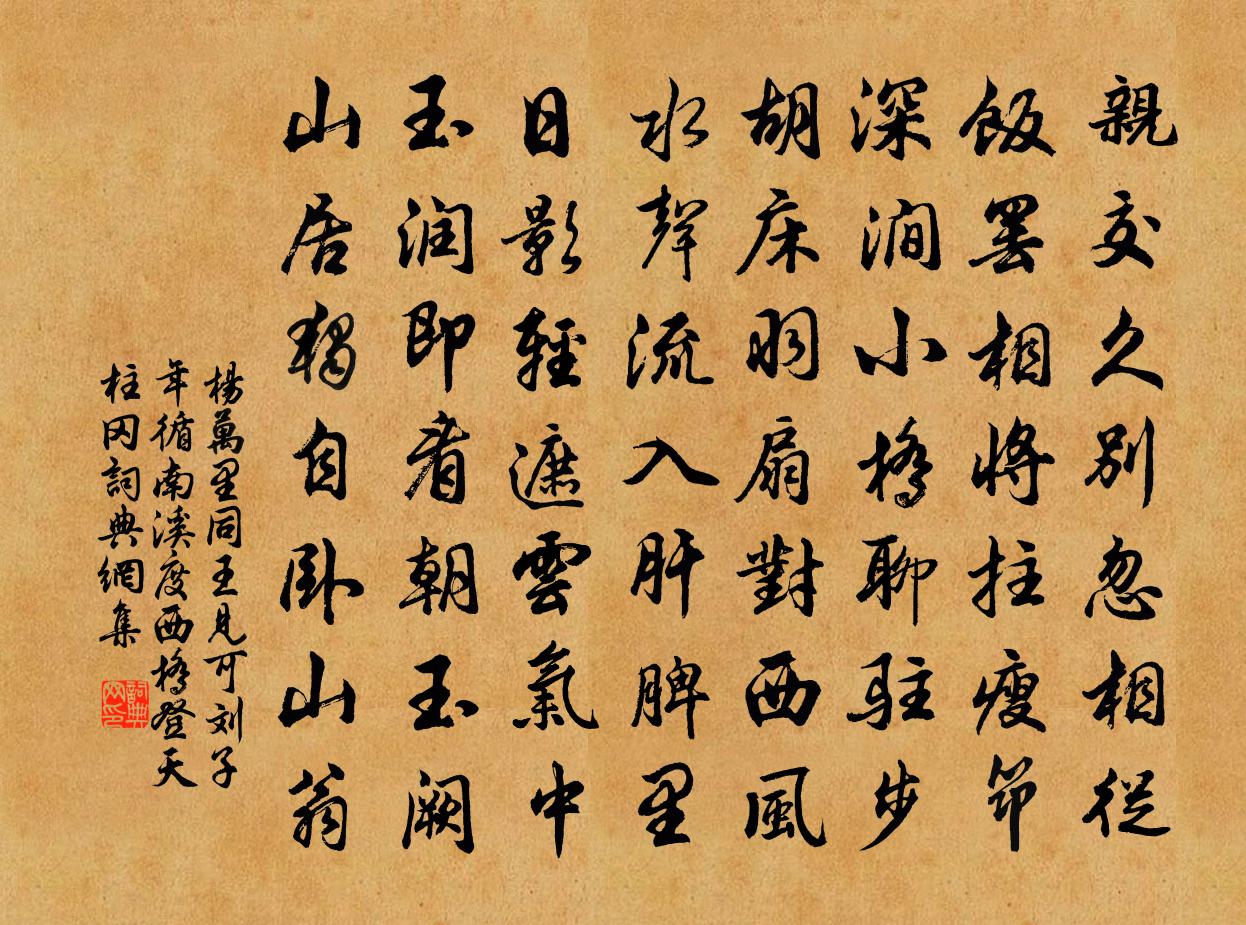 親交久別忽相從
飯罢相將拄瘦筇
深澗小橋聊驻步
胡床羽扇對西風
水聲流入肝脾里
日影輕遮雲氣中
玉润即看朝玉闕
山居獨自卧山翁
楊萬里同王見可刘子
年循南溪度西橋登天
柱冈詞典網集
詞典网印